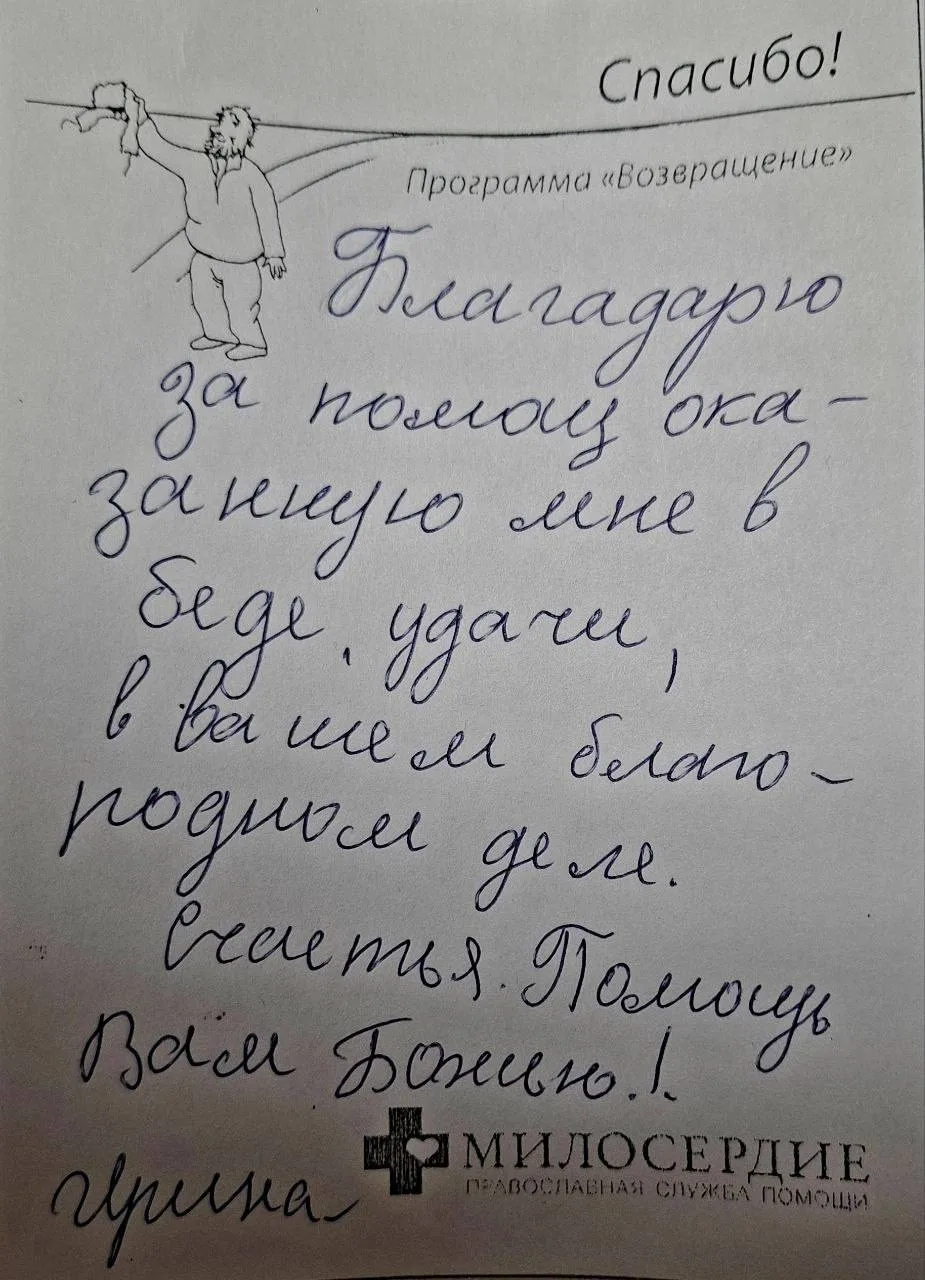 Спасибо!
Программа «Возвращение»
Благадарю
за помощ ока-
занную мне в
беде, удачи,
в вашем благо-
родном деле.
Счастья. Помощь
Вам Божью.!
Ирина
МИЛОСЕРДИЕ
ПРАВОСЛАВНАЯ СЛУЖБА ПОМОЩИ